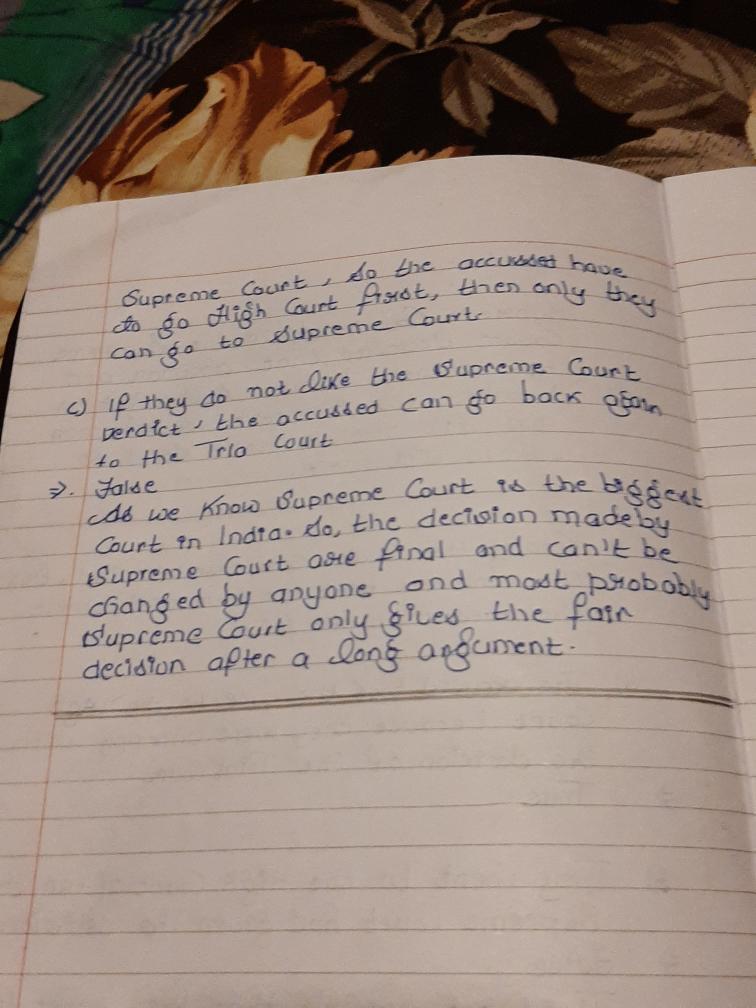 Supreme Court, so the accussed have
to go High Court first, then only they
can go to Supreme Court.
c) If they do not like the Supreme Court
verdict, the accussed can go back again
to the Tria Court
⇒. False
As we know Supreme Court is the biggest
Court in India. So, the decision made by
Supreme Court are final and can't be
changed by anyone and most probably
Supreme Court only gives the fair
decision after a long argument.